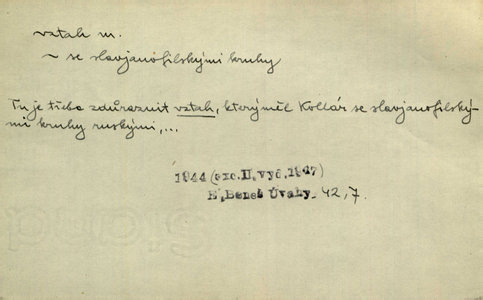 vztah m.
~ se slavjanofilskými kruhy
Tu je třeba zdůraznit vztah, který měl Kollár se slavjanofilský-
mi kruhy ruskými,...
1944 (exc.II.vyd.1947)
E.Beneš Úvahy 42,7.